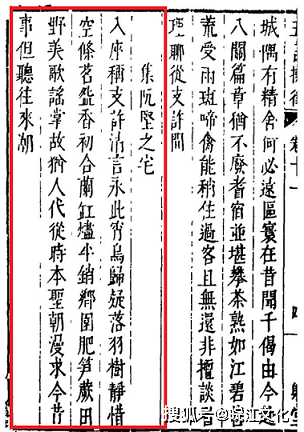 卷十一
城偶有精舍何必遠區寰在昔聞千偈由今
八關篇章猶不廢耆宿並堪攀茶熟如江碧
荒受雨斑啼禽能稍住過客且無還非擅談
理聊從支許間
集阮堅之宅
入座稱支許清言永此宵烏歸疑落羽樹靜惜
空條茗盌香初合蘭缸燼半銷鄉園肥筍蕨田
野美歌謠掌故猶人代從時本聖朝漫求今昔
事但聽往來潮
搜狐号@皖江文化